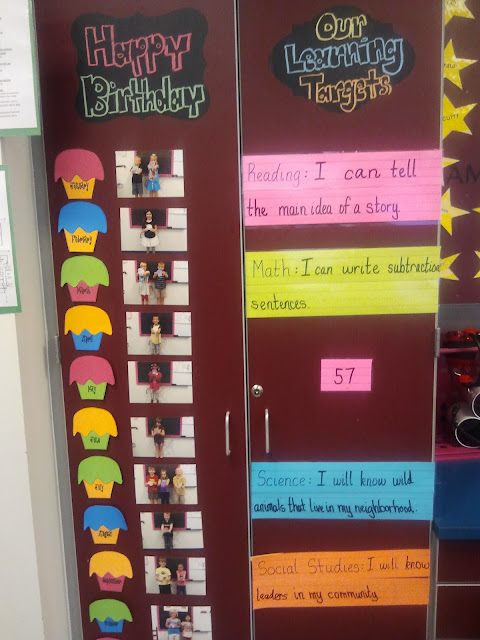 Happy
Birthday
Our
Learning
Targets
Reading: I can tell
the main idea of a story.
Math: I can write subtraction
sentences.
57
Science: I will know wild
animals that live in my neighborhood.
Social Studies: I will know
leaders in my community.